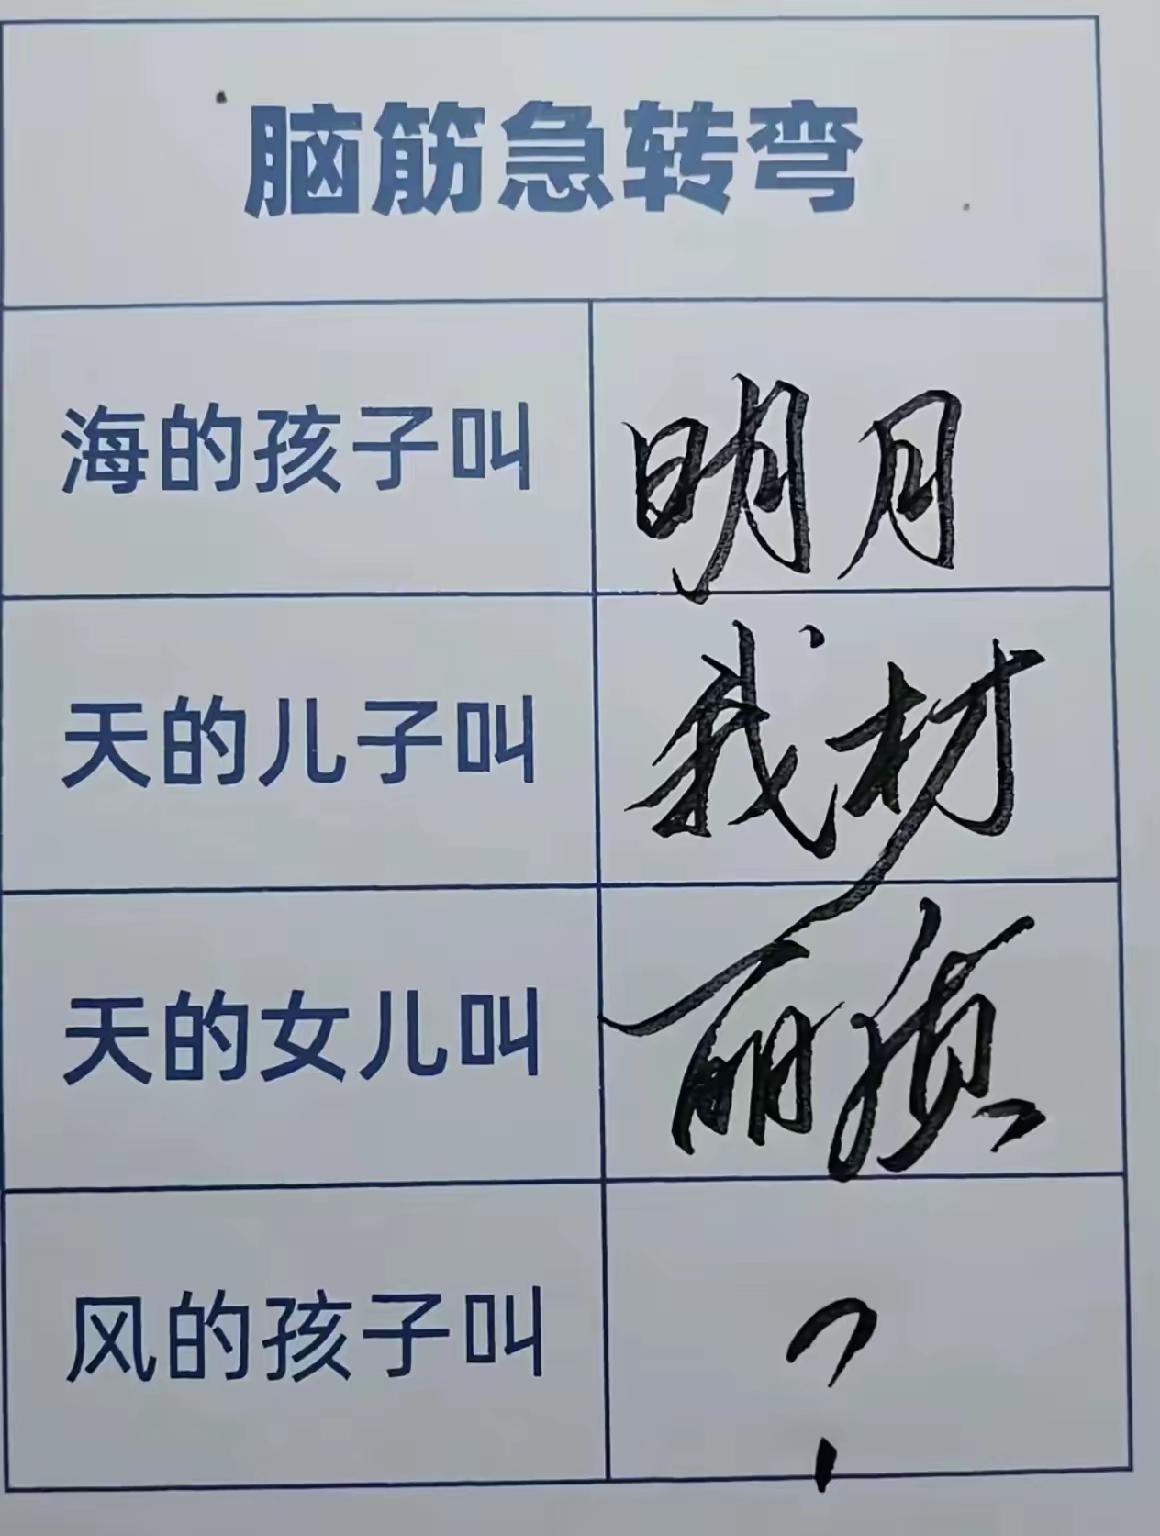 脑筋急转弯
海的孩子叫 明月
天的儿子叫 我材
天的女儿叫 丽质
风的孩子叫 ?